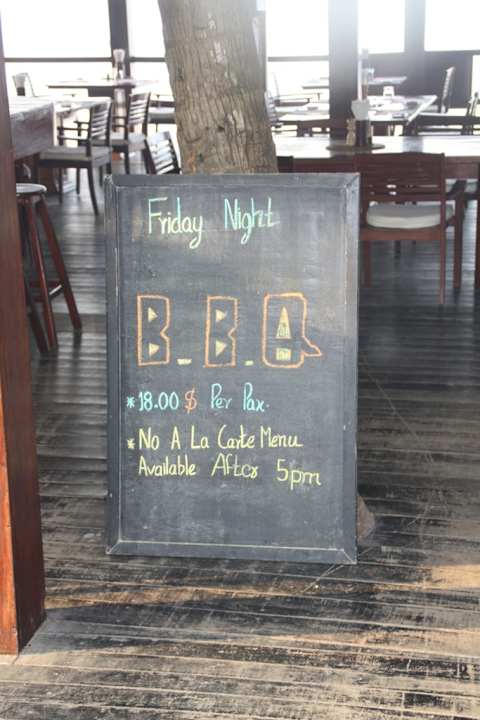 Friday Night
B_B.Q
*18.00 $ Per Pax.
*No A La Carte Menu
Available After 5pm